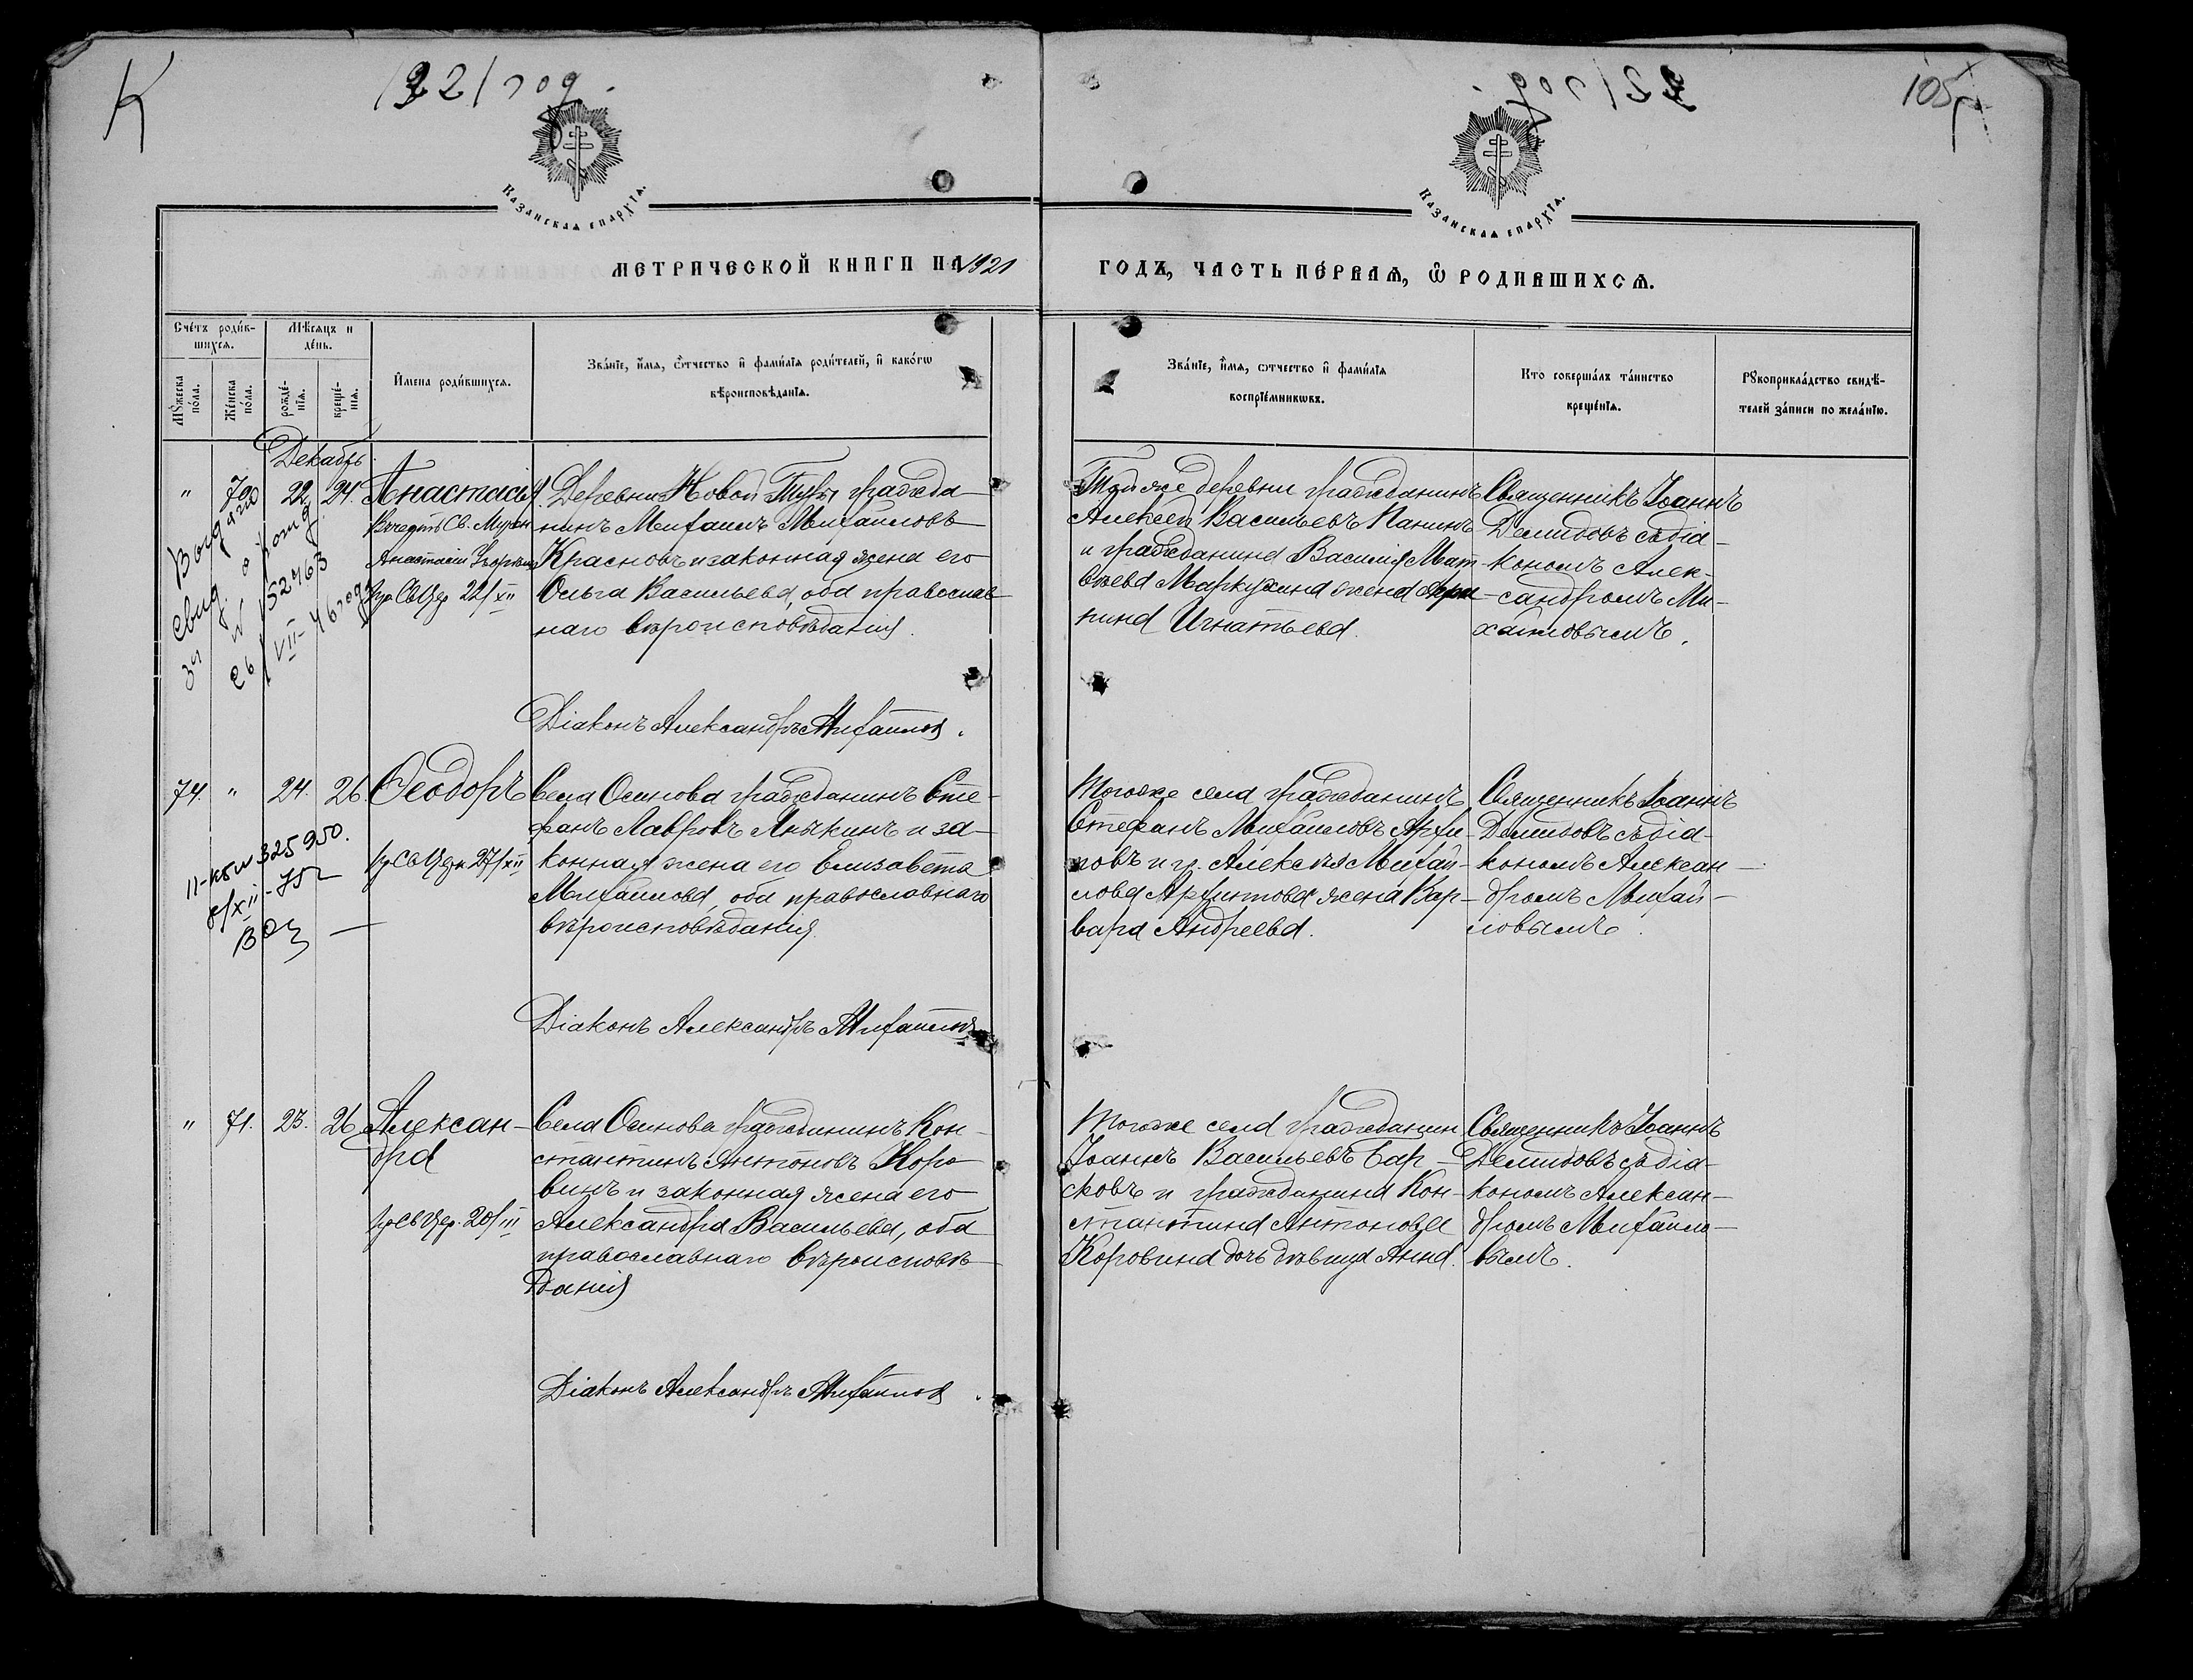 К
1921 год.
1921 год.
105
Казанская епархїа.
Казанская епархїа.
МЕТРИЧЕСКОЙ КНИГИ НА 1921
ГОДЪ, ЧАСТЬ ПЕ́РВАЯ, Ѡ҆ РОДИВШИХСѦ.
Сче́тъ роди́в-
шихсѧ.
Мѣ́сѧцъ и
де́нь.
Мꙋ́жеска
по́ла.
Же́нска
по́ла.
рожде́-
нїѧ.
креще́-
нїѧ.
И҆мена роди́вшихсѧ.
Зва́нїе, и҆́мѧ, ѻ҆́тчество и҆ фами́лїѧ роди́телей, и҆ како́гѡ
вѣроисповѣ́данїѧ.
Зва́нїе, и҆́мѧ, ѻ҆́тчество и҆ фами́лїѧ
воспрїе́мникѡвъ.
Кто соверша́лъ та́инство
креще́нїѧ.
Рꙋкоприкла́дство свидѣ́-
телей за́писи по жела́нїю.
Декабрь
" 70 22 24. Анастасія.
Въ честь Св. Мучен
Анастасіи
22/XII
Выдано
свид. о рожд.
за № 152763
26/VII-46 года
Деревни Новой Туры гражда-
нинъ Михаилъ Михайловъ
Красновъ и законная жена его
Ольга Васильева, оба православ-
наго вѣроисповѣданія.
Діаконъ Александръ Михайловъ.
Той же деревни гражданинъ
Алексей Васильевъ Панинъ
и гражданина Василія Мат-
вѣева Маркужина жена Ири-
нина Игнатьева.
Священникъ Іоаннъ
Демидовъ съ діа-
кономъ Алек-
сандромъ Ми-
хайловымъ.
74. " 24. 26. Ѳеодоръ
27/XII
325950.
8/XII-75г
Села Осинова гражданинъ Сте-
фанъ Лавровъ Аныкинъ и за-
конная жена его Елизавета
Михайлова, оба православнаго
вѣроисповѣданія.
Діаконъ Александръ Михайловъ
Того же села гражданинъ
Стефанъ Михайловъ Архи-
повъ и гр. Алексѣя Михай-
лова Архипова жена Вар-
вара Андреева.
Священникъ Іоаннъ
Демидовъ съ діа-
кономъ Алексан-
дромъ Михай-
ловымъ.
" 71. 23. 26 Алексан-
дра
20/III
Села Осинова гражданинъ Кон-
стантинъ Антоновъ Коро-
винъ и законная жена его
Александра Васильева, оба
православнаго вѣроисповѣ-
данія
Діаконъ Александръ Михайловъ.
Того же села гражданин
Іоаннъ Васильевъ Бар-
сковъ и гражданина Кон-
стантина Антонова
Коровина дочь дѣвица Анна.
Священникъ Іоаннъ
Демидовъ съ діа-
кономъ Алексан-
дромъ Михайло-
вымъ.